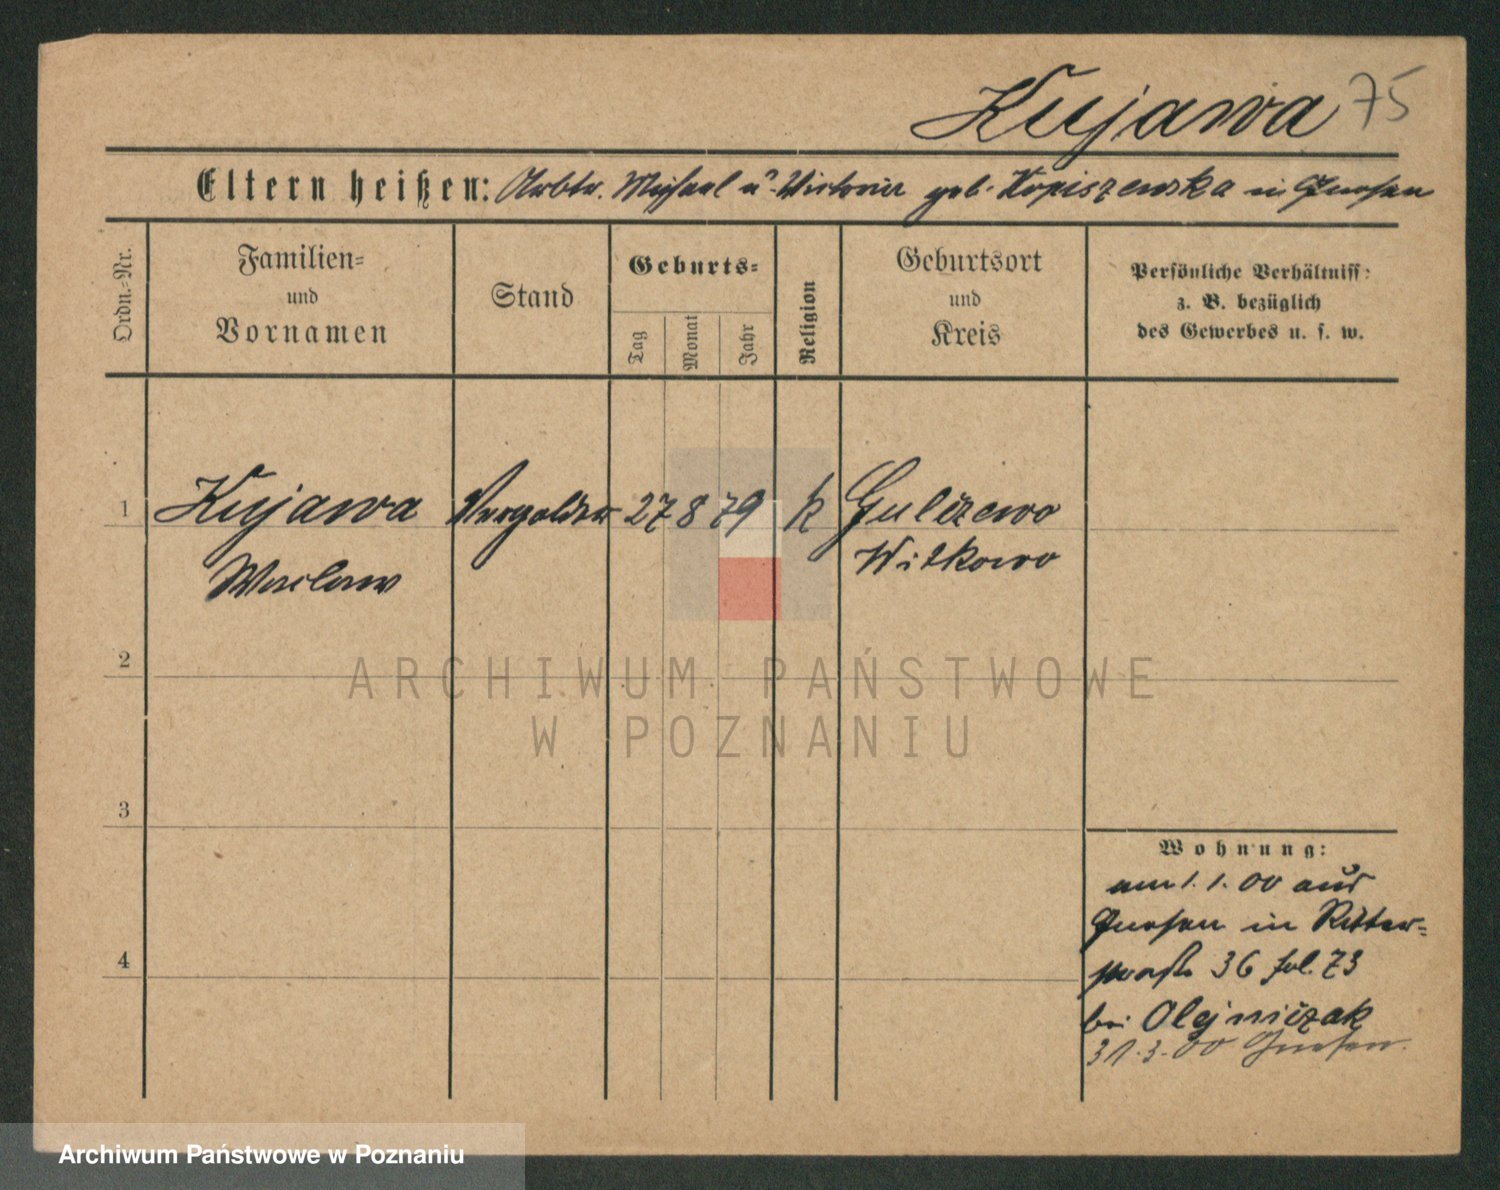 Kujawa 75
Eltern heißen: Arbtr. Michael u. Victoria geb. Kopiszewska in Gnesen
Ordn.-Nr.
Familien-
und
Vornamen
Stand
Geburts-
Tag
Monat
Jahr
Religion
Geburtsort
und
Kreis
Persönliche Verhältniss:
z. B. bezüglich
des Gewerbes u. s. w.
1 Kujawa Vergolder 27 8 79 k Gulczewo
Waclaw Witkowo
2
ARCHIWUM PAŃSTWOWE
W POZNANIU
3
Wohnung:
am 1. 1. 00 aus
Gnesen in Ritter-
straße 36 fol. 73
bei Olejniczak
31.3.00 Gnesen.
4
Archiwum Państwowe w Poznaniu